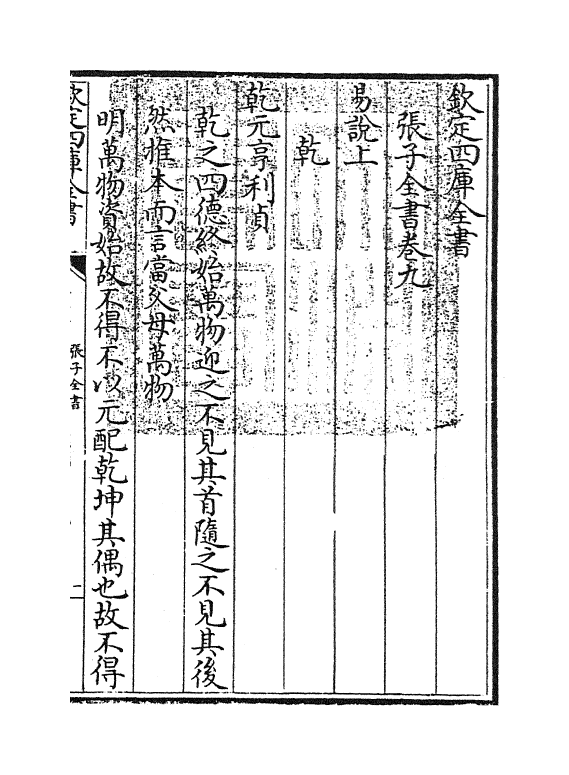 欽定四庫全書
張子全書卷九
易說上
乾
乾元亨利貞
乾之四德終始萬物迎之不見其首隨之不見其後
然推本而言當父母萬物
明萬物資始故不得不以元配乾坤其偶也故不得
欽定四庫全書
張子全書
二